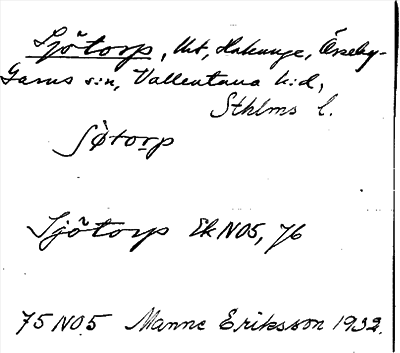 Sjötorp, lht, Hakunge, Össeby-
Garns sn, Vallentuna hd,
Sthlms l.
ʃø̀torp
Sjötorp Ek NO5, 76
75 NO.5 Manne Eriksson 1932.